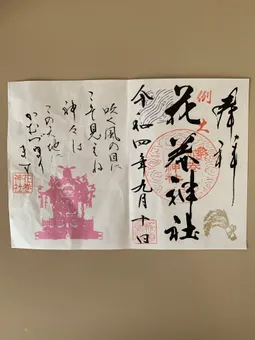 奉拝
例大祭
花巻神社
令和四年九月十日
吹く風の目に
こそ見えね
神々は
この天地に
かむづまり
ます
花巻
神社